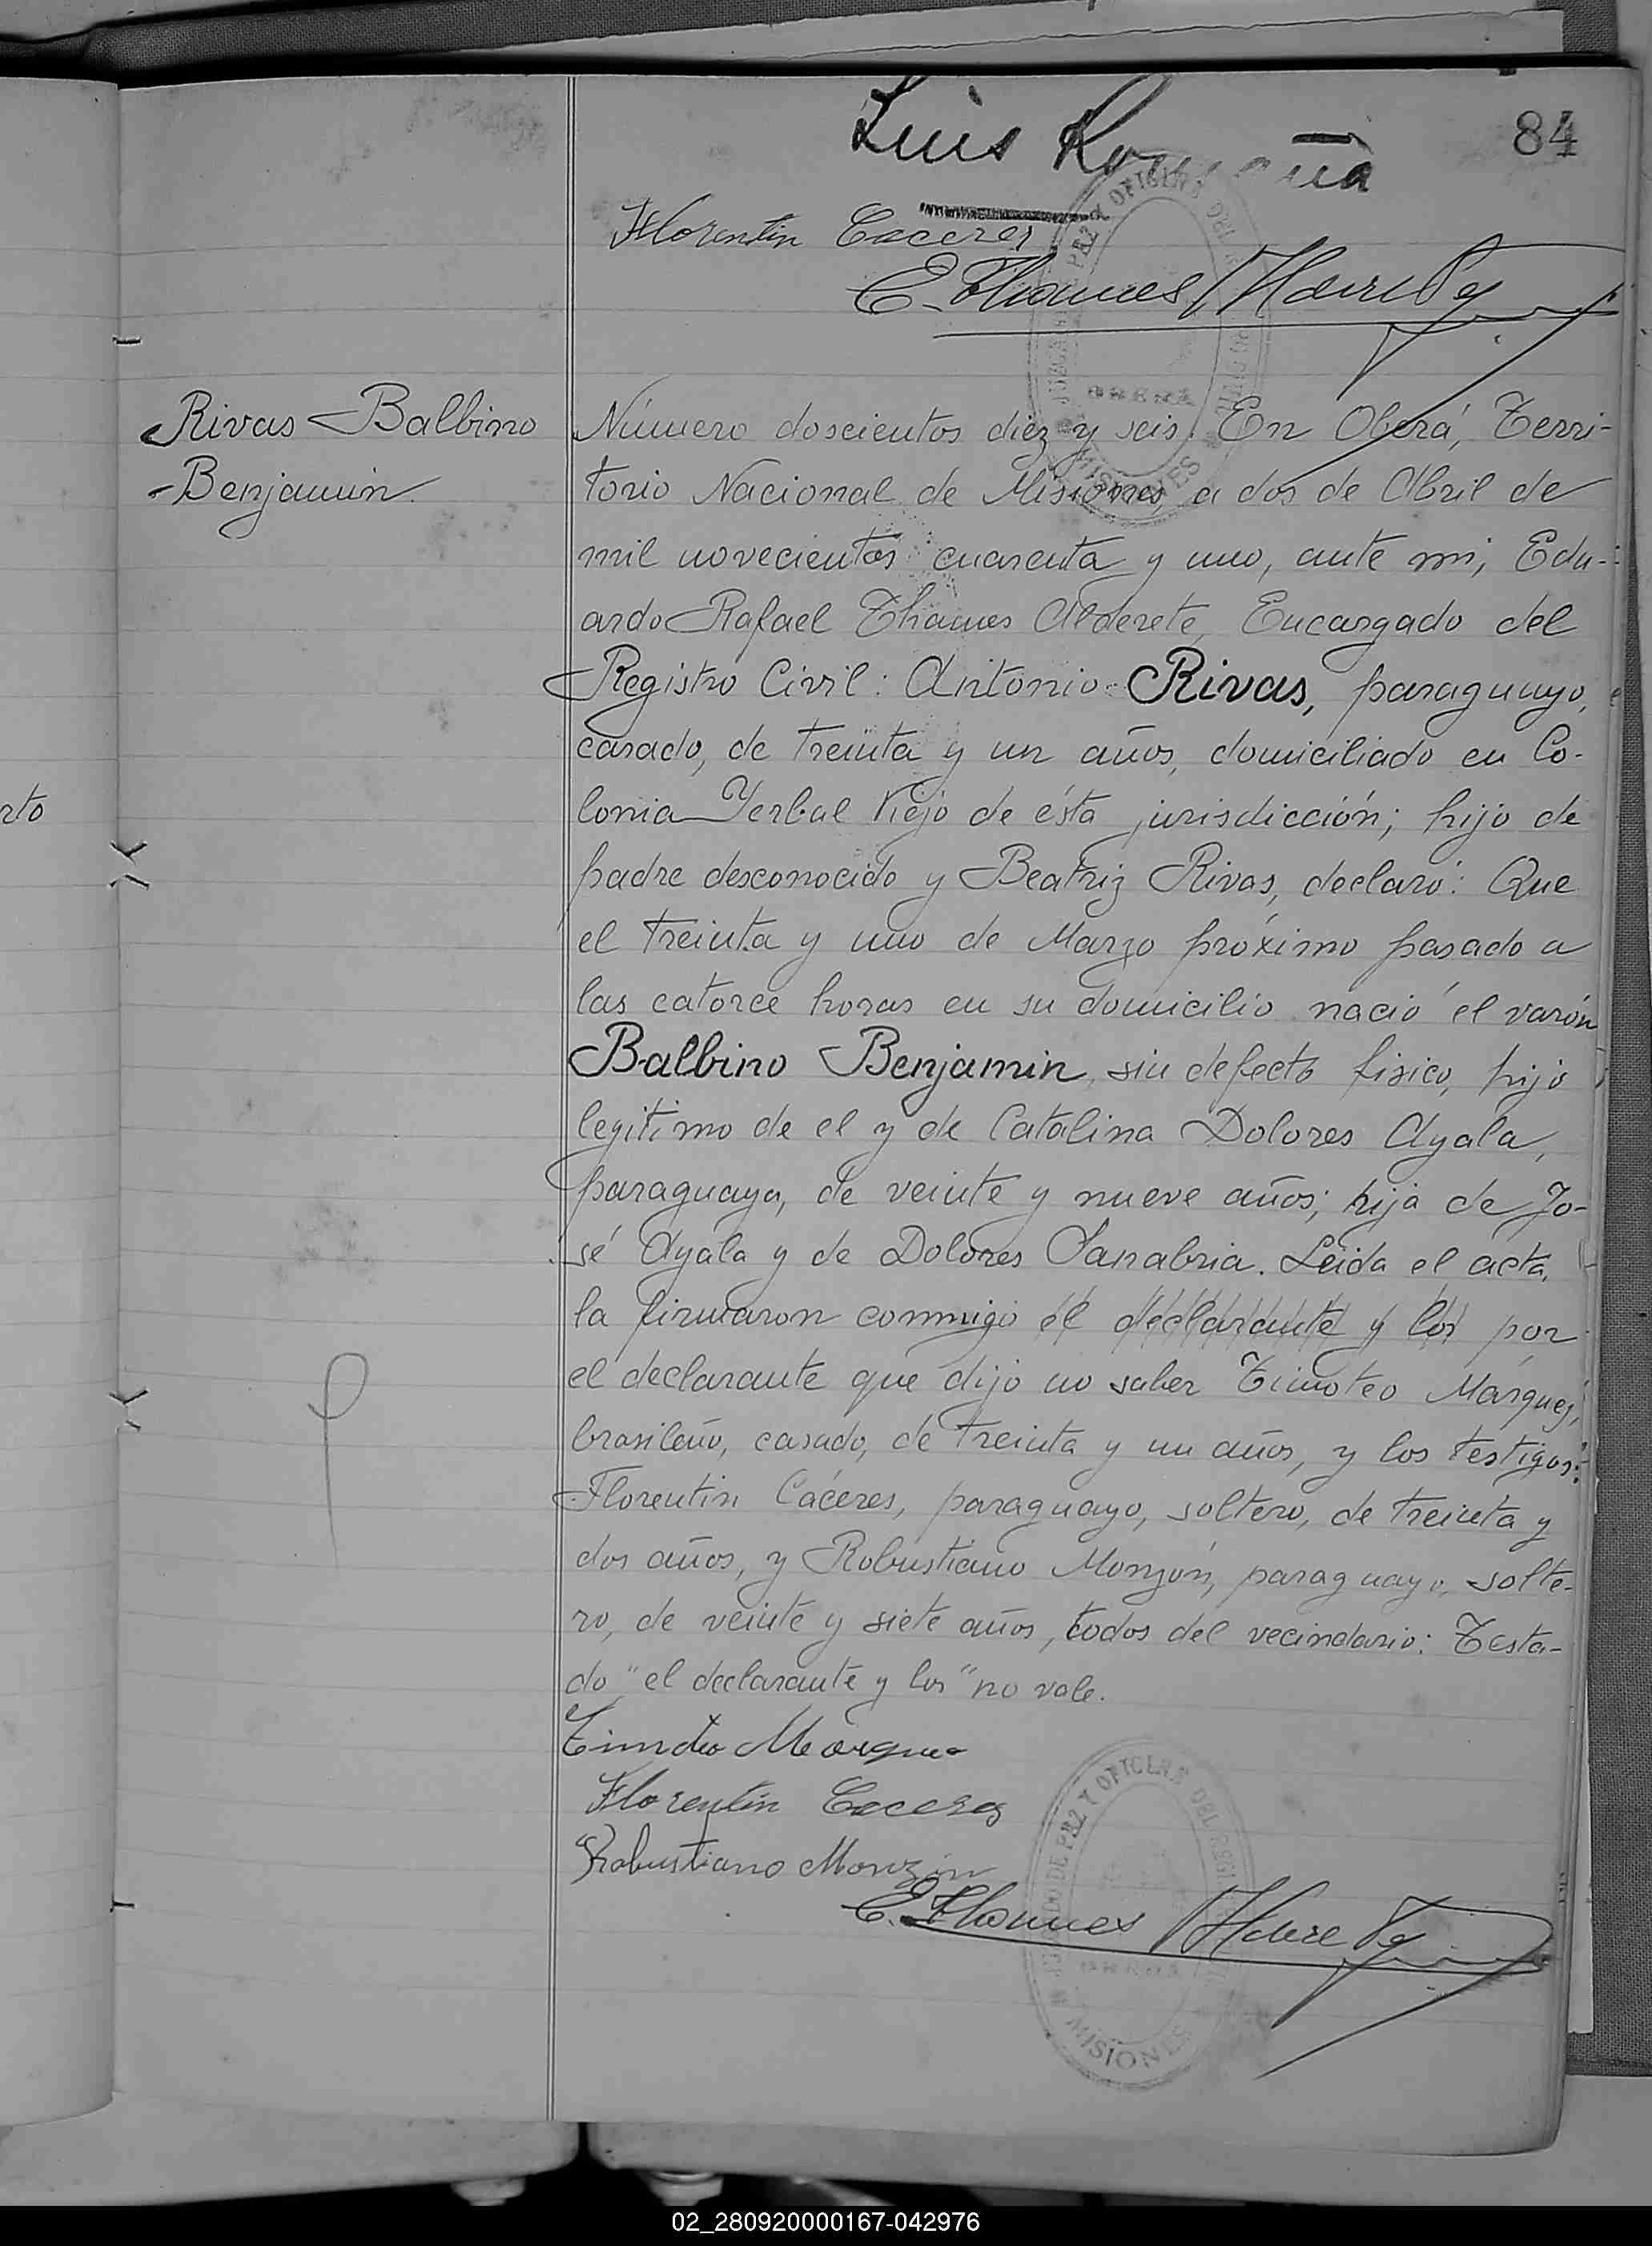 84
Luis
Florentin Caceres
E. Thames Alderete
Rivas Balbino
Benjamin.
Número doscientos diez y seis. En Oberá, Terri-
torio Nacional de Misiones, a dos de Abril de
mil novecientos cuarenta y uno, ante mi, Edu-
ardo Rafael Thames Alderete, Encargado del
Registro Civil: Antonio Rivas, paraguayo,
casado, de treinta y un años, domiciliado en Co-
lonia Yerbal Viejo de ésta jurisdicción; hijo de
padre desconocido y Beatriz Rivas, declaró: Que
el treinta y uno de Marzo próximo pasado a
las catorce horas en su domicilio nació el varón
Balbino Benjamin, sin defecto fisico, hijo
legitimo de el y de Catalina Dolores Ayala,
paraguaya, de veinte y nueve años; hija de Jo-
sé Ayala y de Dolores Sanabria. Leida el acta,
la firmaron conmigo el declarante y los por
el declarante que dijo no saber Timoteo Márquez,
brasileño, casado, de treinta y un años, y los testigos:
Florentin Cáceres, paraguayo, soltero, de treinta y
dos años, y Robustiano Monzón, paraguayo, solte-
ro, de veinte y siete años, todos del vecindario: Testa-
do "el declarante y los" no vale.
Timoteo Marques
Florentin Caceres
Robustiano Monzón
E. Thames Alderete
JUZGADO DE PAZ Y OFICINA DEL REGISTRO CIVIL
MISIONES
rto
02_280920000167-042976